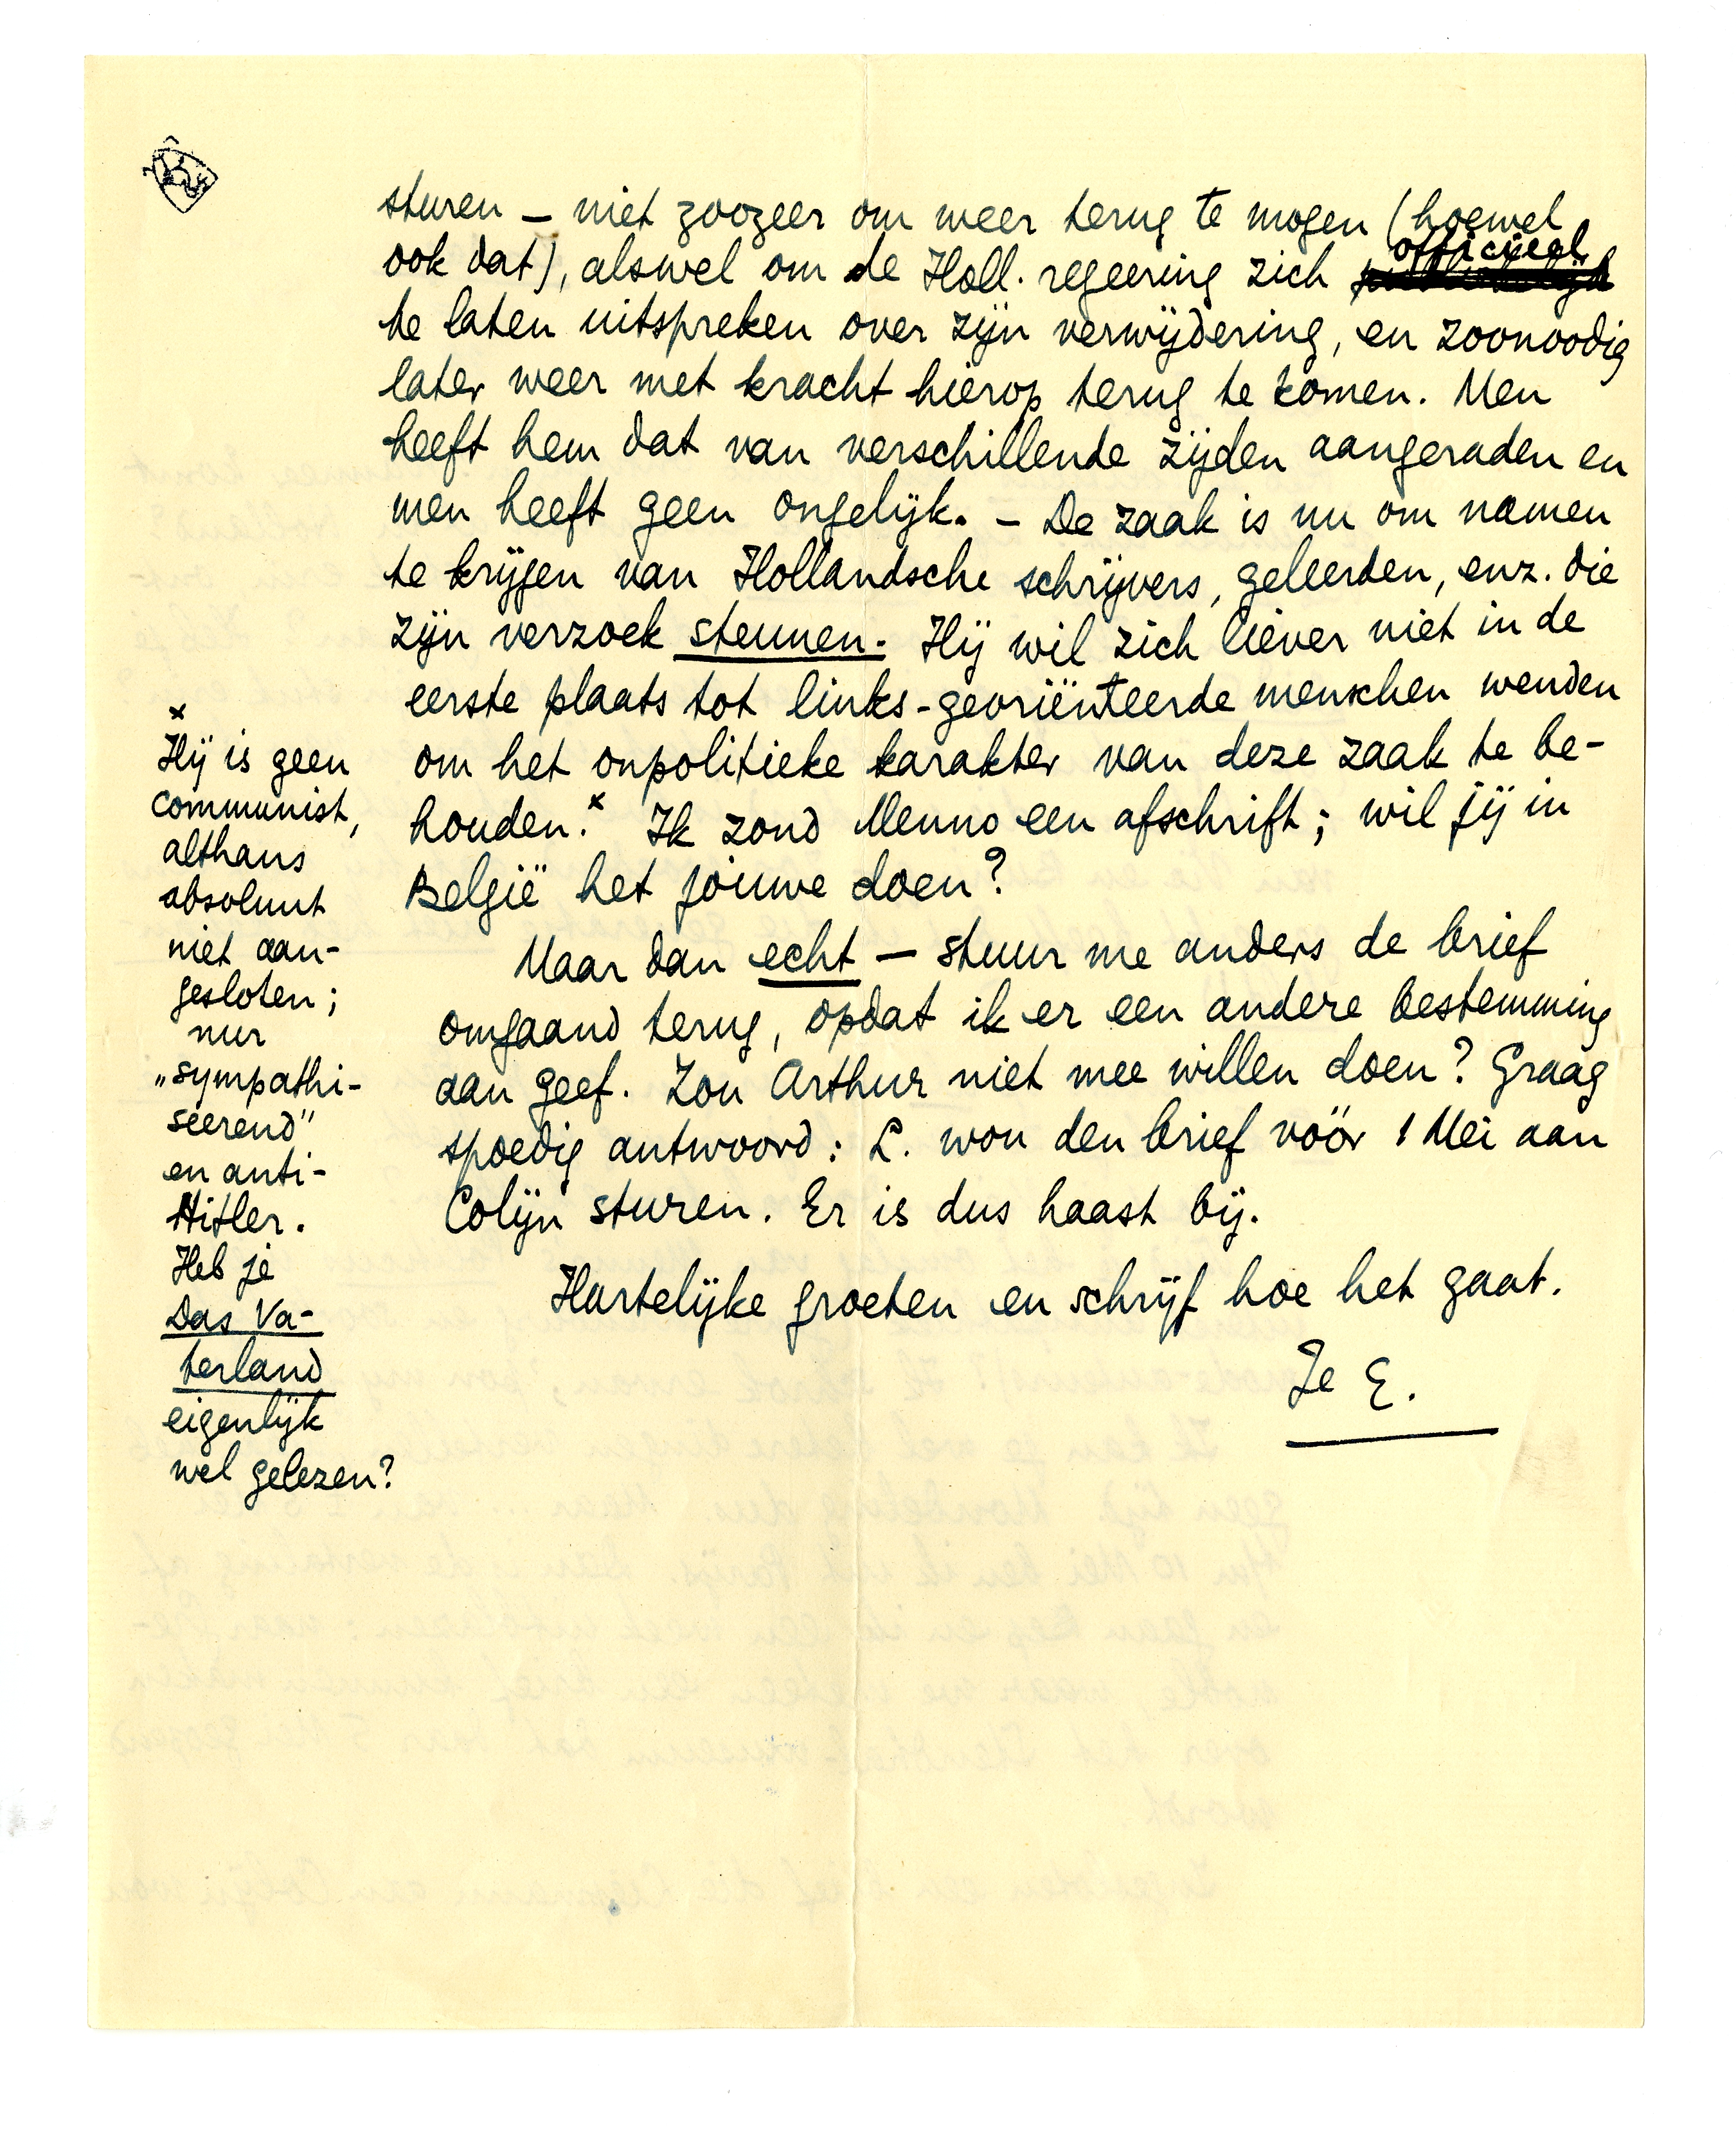 sturen — niet zoozeer om weer terug te mogen (hoewel
officieel
ook dat), alswel om de Holl. regeering zich
te laten uitspreken over zijn verwijdering, en zoonoodig
later weer met kracht hierop terug te komen. Men
heeft hem dat van verschillende zijden aangeraden en
men heeft geen ongelijk. – De zaak is nu om namen
te krijgen van Hollandsche schrijvers, geleerden, enz. die
zijn verzoek steunen. Hij wil zich liever niet in de
eerste plaats tot links-georiënteerde menschen wenden
om het onpolitieke karakter van deze zaak te be-
houden.x Ik zond Menno een afschrift; wil jij in
België het jouwe doen?
Maar dan echt — stuur me anders de brief
omgaand terug, opdat ik er een andere bestemming
aan geef. Zou Arthur niet mee willen doen? Graag
spoedig antwoord: L. wou den brief vóór 1 Mei aan
Colijn sturen. Er is dus haast bij.
Hartelijke groeten en schrijf hoe het gaat.
Je E.
x
Hij is geen
communist,
althans
absoluut
niet aan-
gesloten;
nur
„sympathi-
seerend"
en anti-
Hitler.
Heb je
Das Va-
terland
eigenlijk
wel gelezen?